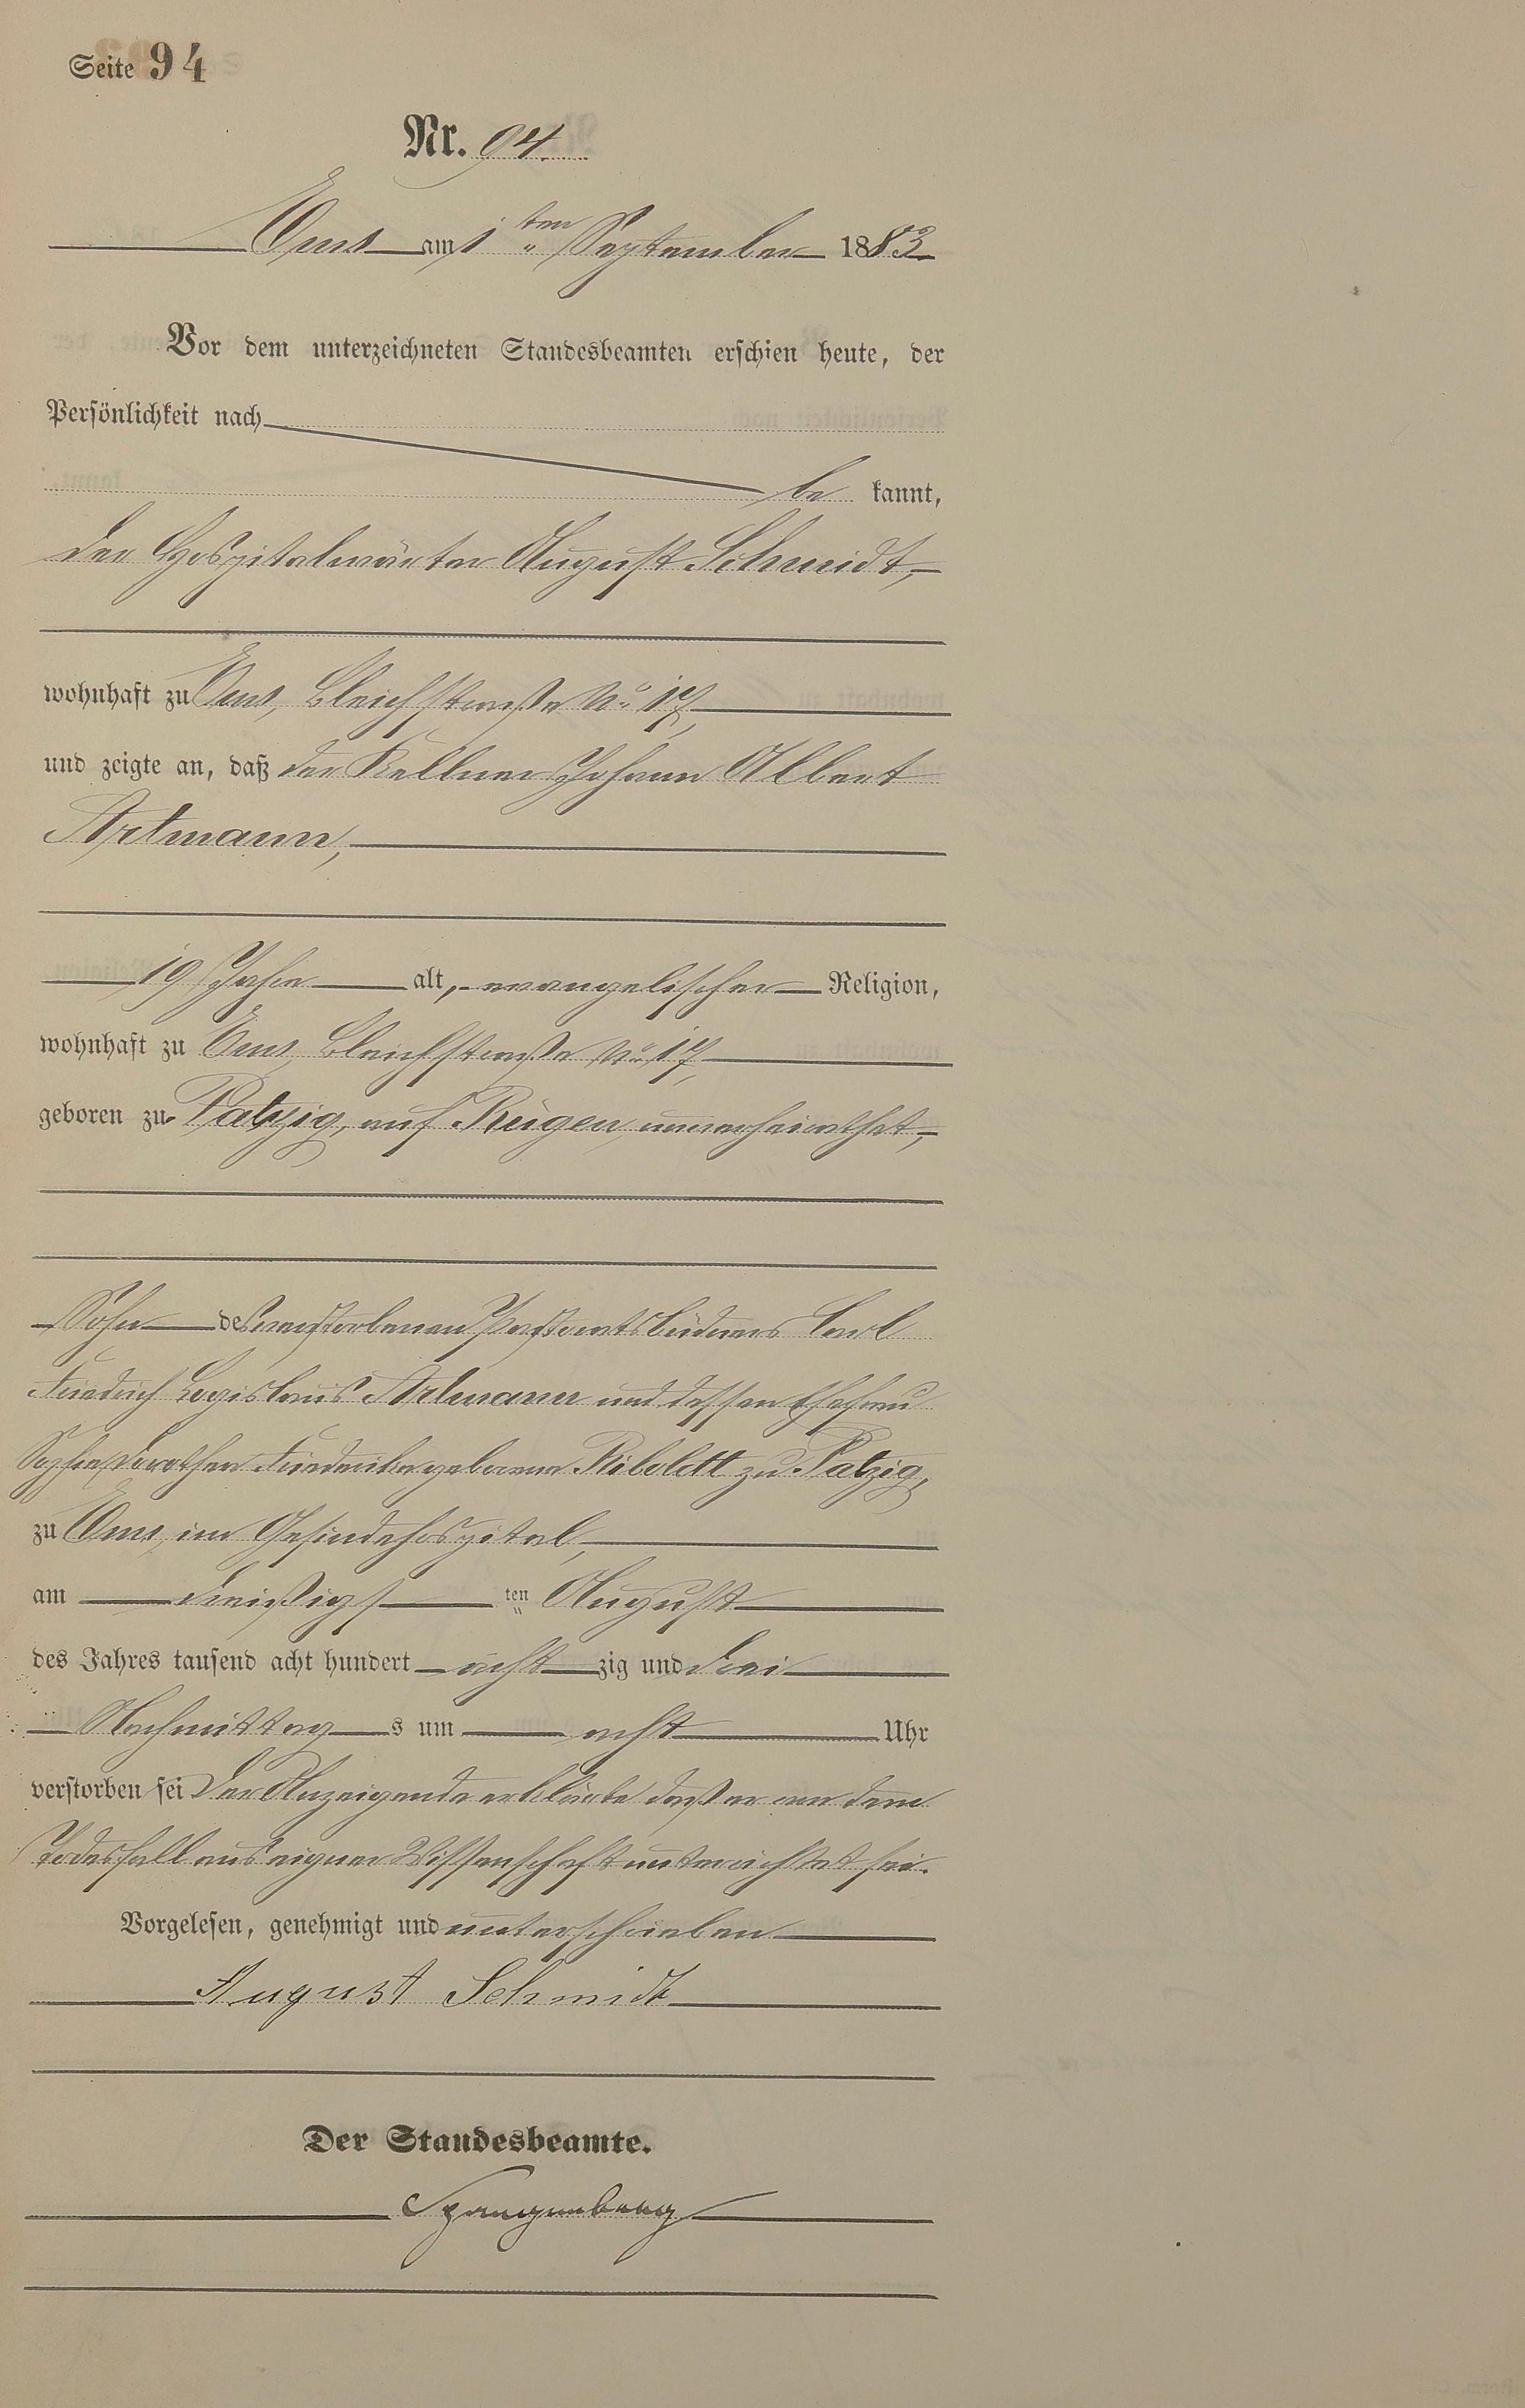 Seite 94
Nr. 94.
Ems am 1ten September 1883.
Vor dem unterzeichneten Standesbeamten erschien heute, der
Persönlichkeit nach
be kannt,
der Hospitalwärter August Schmidt,
wohnhaft zu Ems, Bleichstraße No 17,
und zeigte an, daß der Kellner Johann Albert
Artmann,
19 Jahre alt, evangelischer Religion,
wohnhaft zu Ems, Bleichstraße No 17,
geboren zu Patzig, auf Rügen, unverheirathet,
Sohn des verstorbenen Carl
Friedrich Artmann und dessen Ehefrau
Sophia Dorothea Friederike geborene zu Patzig,
zu Ems, im Gesindehospital,
am dreißigsten August
des Jahres tausend acht hundert acht zig und drei
Nachmittag s um acht Uhr
verstorben sei Der Anzeigende erklärte daß er von dem
Todesfall aus eigner Wissenschaft unterrichtet sei.
Vorgelesen, genehmigt und unterschrieben
August Schmidt
Der Standesbeamte.
Spangenberg